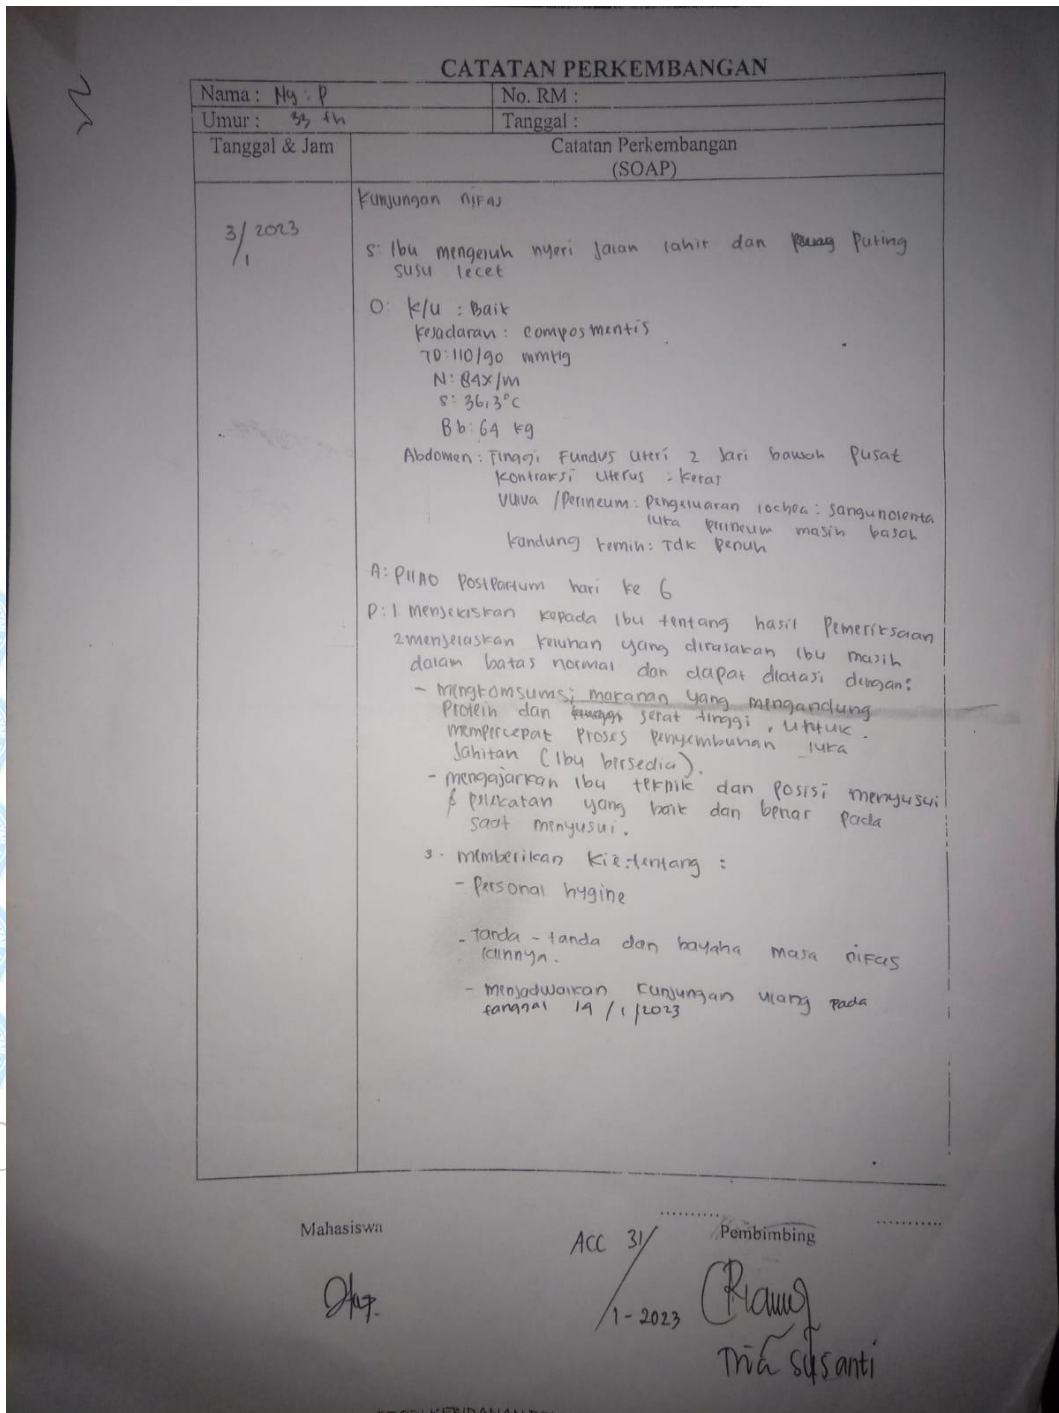 CATATAN PERKEMBANGAN
Nama : Ny. P No. RM :
Umur : 33 th Tanggal :
Tanggal & Jam Catatan Perkembangan
(SOAP)
Kunjungan nifas
3/1 2023
S: Ibu mengeluh nyeri jalan lahir dan puting
susu lecet
O: K/u : Baik
Kesadaran : composmentis
TD: 110/90 mmHg
N: 84x/m
S: 36,3°C
Bb: 64 kg
Abdomen : Tinggi Fundus Uteri 2 Jari bawah pusat
Kontraksi Uterus : Keras
Vulva / Perineum : pengeluaran lochea : sangunolenta
luka perineum masih basah
Kandung kemih: Tdk penuh
A: PIIA0 Postpartum hari ke 6
P: 1. menjelaskan kepada Ibu tentang hasil Pemeriksaan
2 menjelaskan keluhan yang dirasakan Ibu masih
dalam batas normal dan dapat diatasi dengan:
- mengkomsumsi makanan yang mengandung
Protein dan serat tinggi, untuk
mempercepat proses penyembuhan luka
Jahitan (Ibu bersedia).
- mengajarkan Ibu teknik dan posisi menyusui
& pelekatan yang baik dan benar pada
saat menyusui.
3. memberikan Kie tentang :
- Personal hygine
- Tanda - tanda dan bayaha masa nifas
lainnya.
- menjadwalkan kunjungan ulang pada
tanggal 14 / 1 / 2023
Mahasiswa Pembimbing
ACC 31/1-2023
Tria Susanti